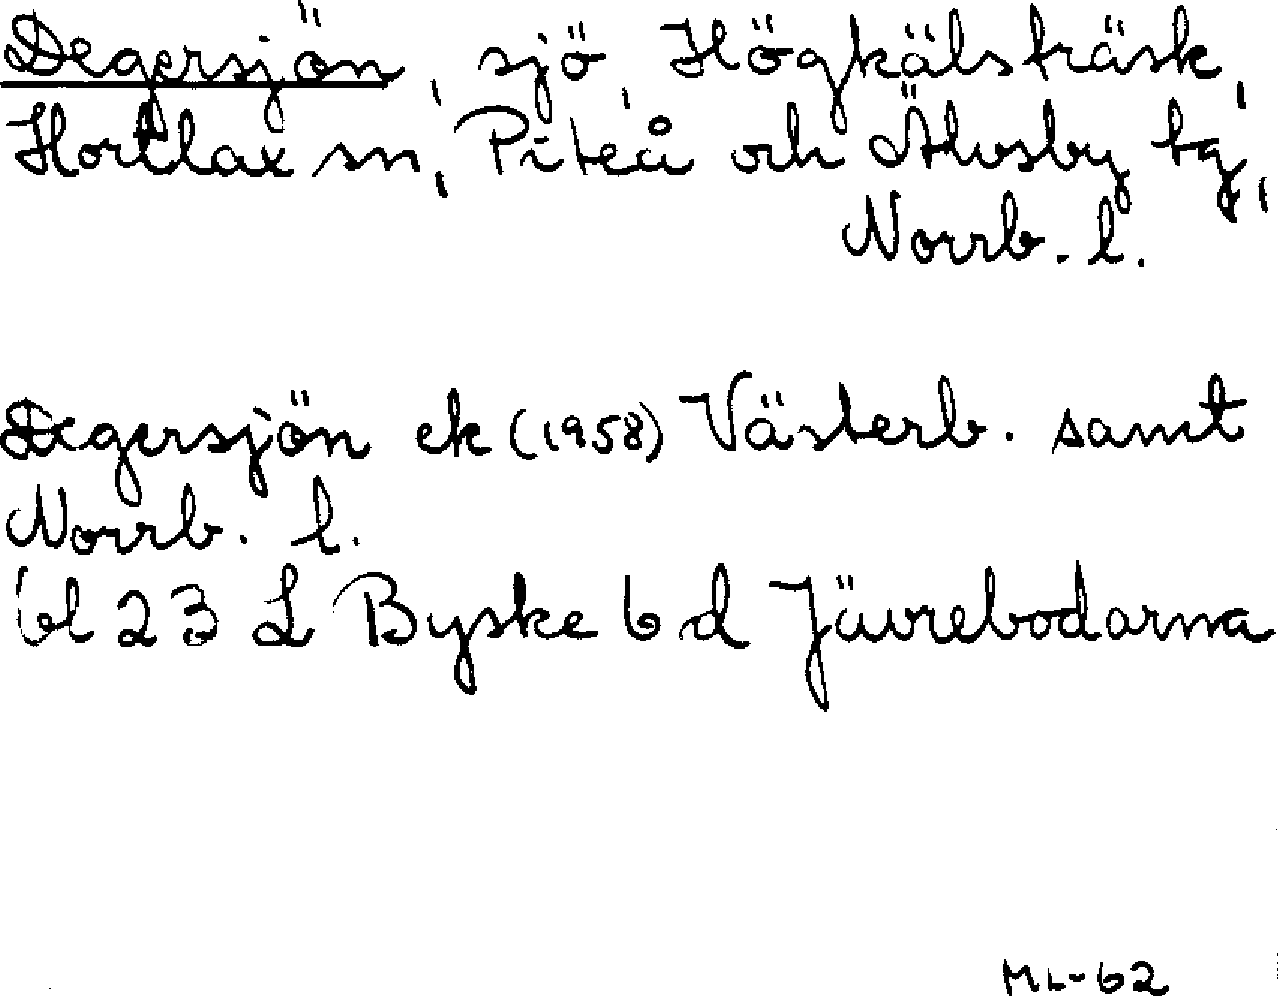 Degersjön, sjö, Högkälsträsk,
Hortlax sn, Piteå och Älvsby tg,
Norrb. l.
Degersjön ek (1958) Västerb. samt
Norrb. l.
bl 23 L Byske b d Jävrebodarna
ML-62